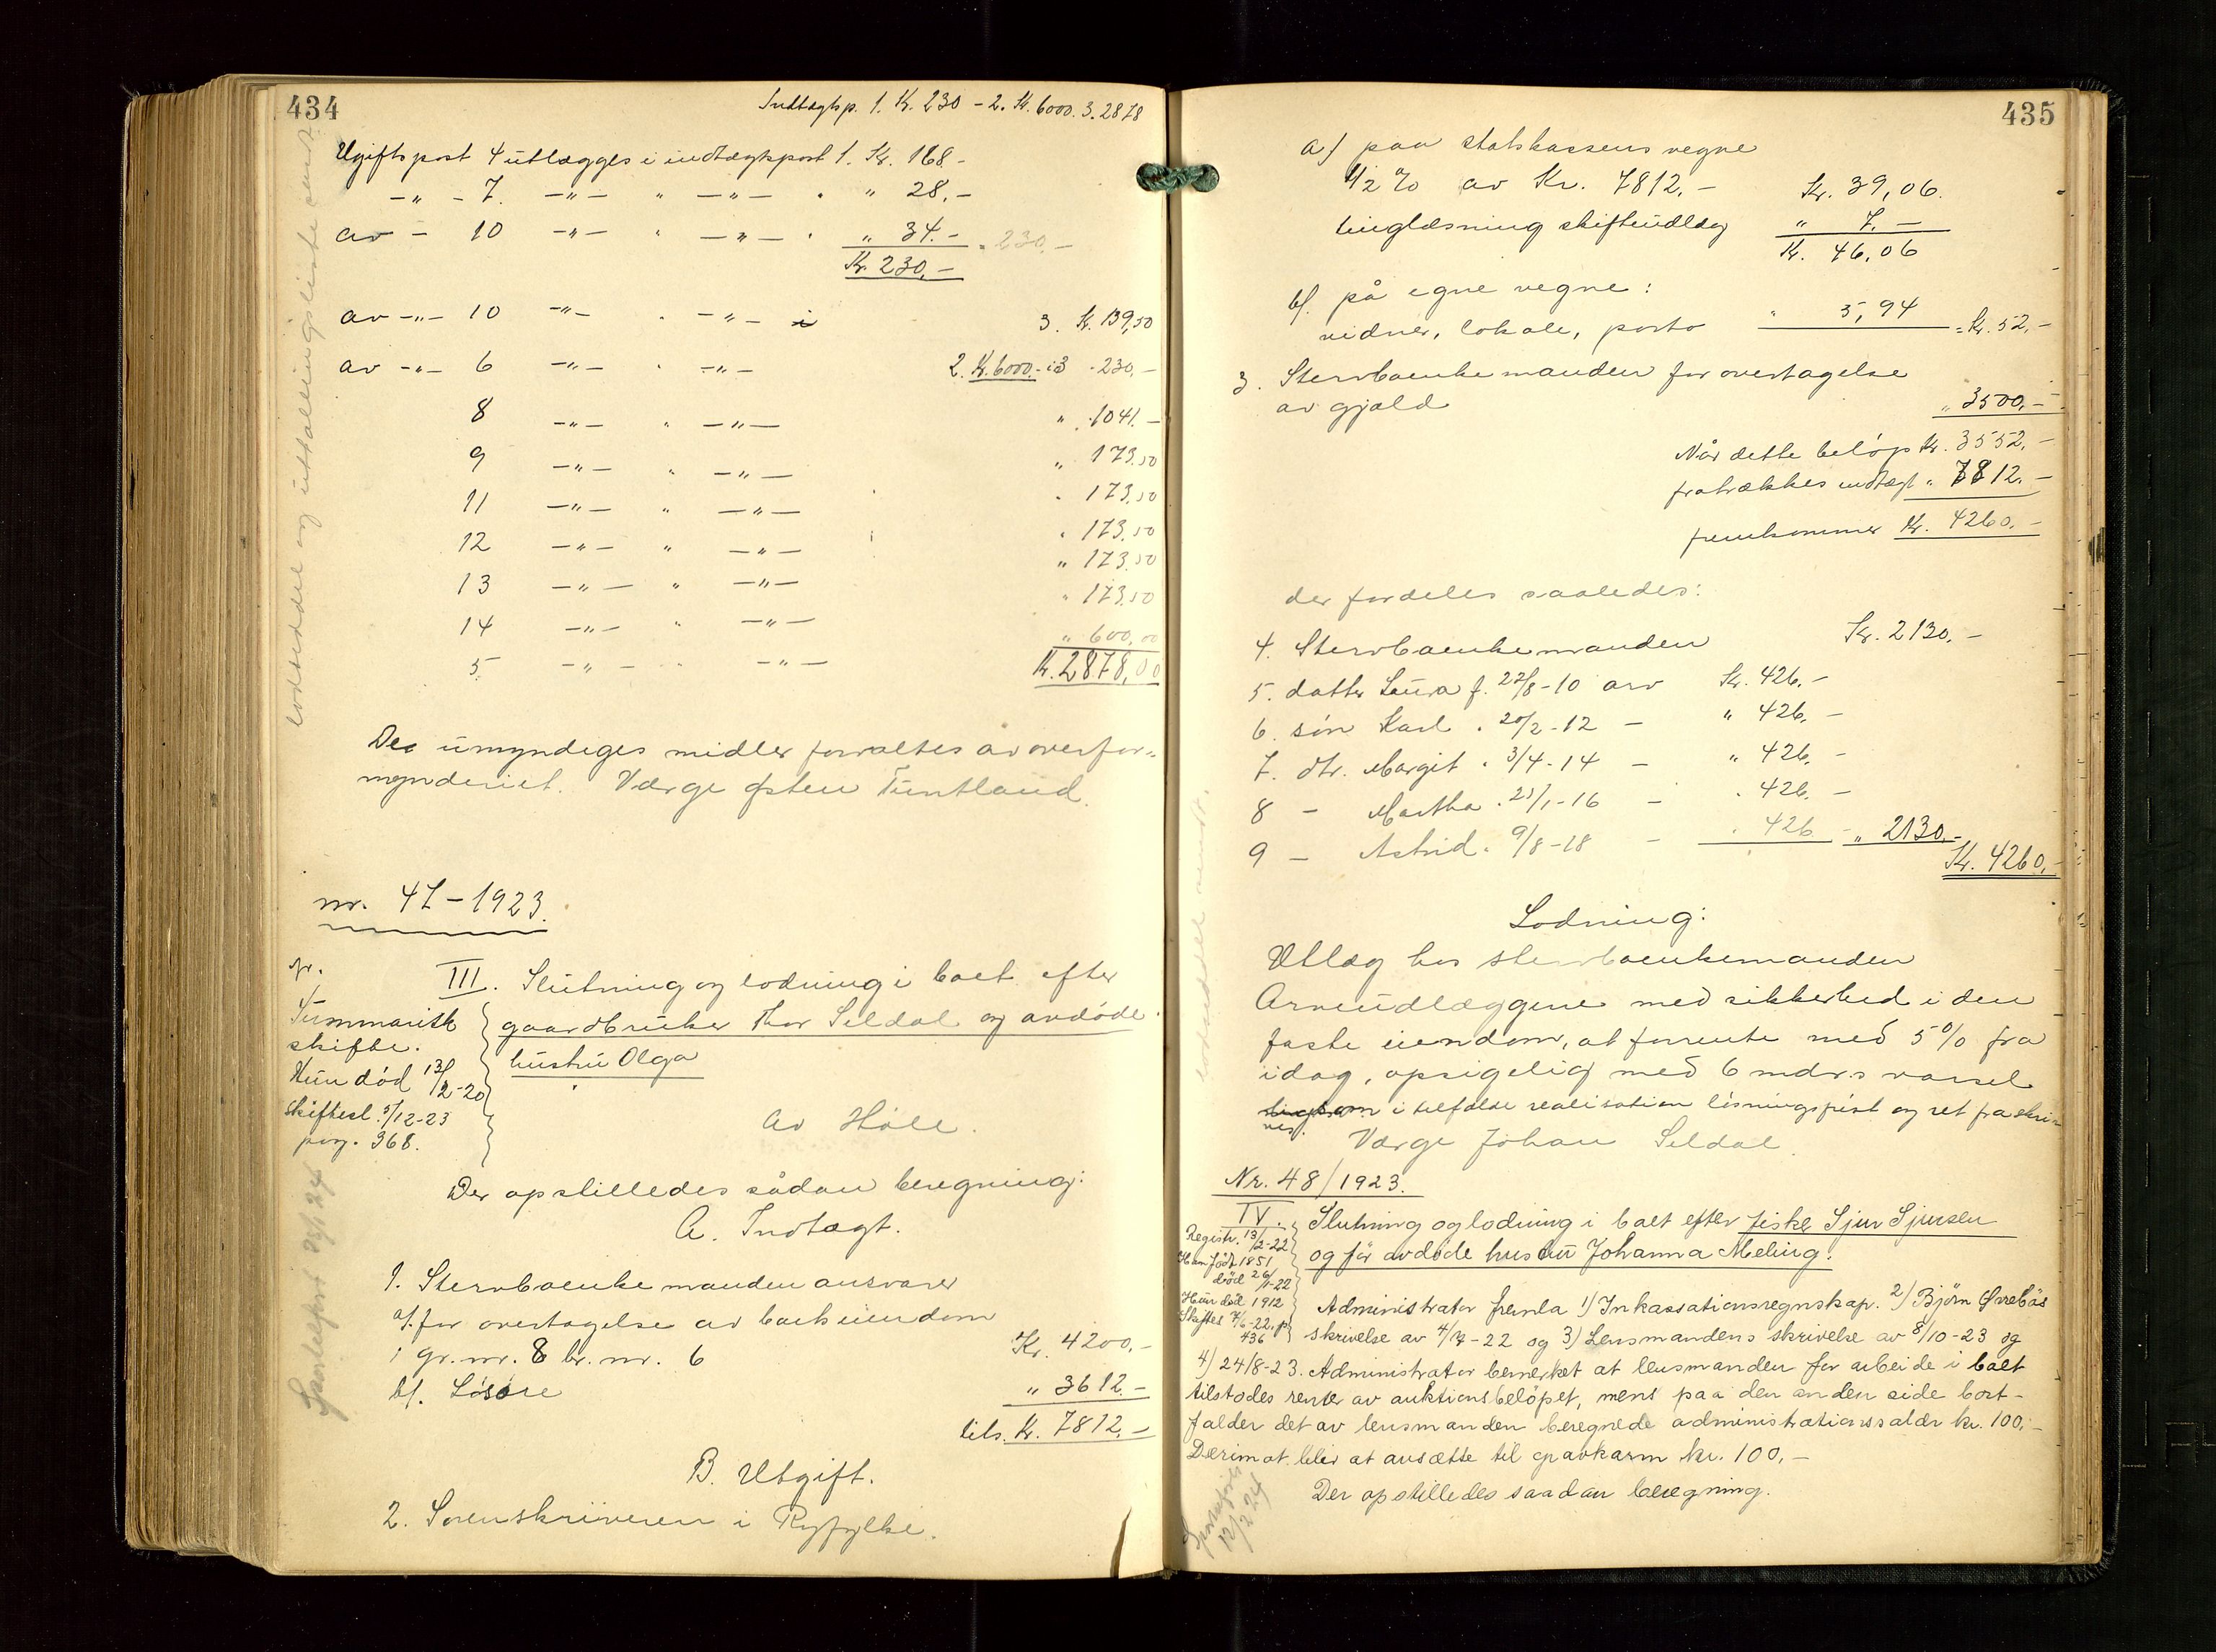 434
Indtægtsp. 1. Kr. 230 - 2. Kr. 6000. 3. 2878
Utgiftspost 4 utlægges i indtægtspost 1. Kr. 168 -
-"- - 7. -"- " -"- " " 28.-
av - 10 -"- " -"- " " 34.- = 230.-
Kr. 230,-
av -"- 10 -"- . -"- i 3. Kr. 139,50
av -"- 6 -"- . -"- 2. Kr. 6000.- i 3 - 230,-
8 -"- " -"- " 1041.-
9 -"- " -"- " 173.50
11 -"- " -"- " 173.50
12 -"- " -"- " 173.50
13 -"- " -"- " 173.50
14 -"- " -"- " 173.50
5. -"- " -"- " 600,00
Kr. 2878,00
De umyndiges midler forvaltes av overfor-
mynderiet. Værge Østen Tuntland.
nr. 47 - 1923.
III. Slutning og lodning i boet efter
gaardbruker Thor Seldal og avdøde
hustru Olga
av Høle.
Summarisk
skifte.
Hun død 13/2-20
Skiftesl. 5/12-23
pag. 368.
Der opstilledes sådan beregning:
A. Indtægt.
1. Stervboenkemanden ansvarer
a/. for overtagelse av boets eiendom
i gr. nr. 8 br. nr. 6 Kr. 4200,-
b/. Løsøre " 3612.-
tils. Kr. 7812.-
B. Utgift.
2. Sorenskriveren i Ryfylke.
Sportelført
435
a/ paa statskassens vegne
1/2 % av Kr. 7812,- Kr. 39,06.
tinglæsning skifteudlæg " 7.-
Kr. 46,06
b/. på egne vegne:
vidner, lokale, porto " 5,94 = Kr. 52,-
3. Stervboenkemanden for overtagelse
av gjæld " 3500,-
Når dette beløp Kr. 3552,-
fratrækkes indtægt " 7812.-
fremkommer Kr. 4260.-
der fordeles saaledes:
4. Stervboenkemanden Kr. 2130.-
5. datter Laura f. 22/8-10 arv Kr. 426,-
6. søn Karl " 20/2-12 - " 426,-
7. dtr. Margit " 3/4-14 - " 426,-
8 - Martha " 21/1-16 - " 426,-
9 - Astrid " 9/8-18 - " 426 - " 2130.-
Kr. 4260,-
Lodning:
Utlæg hos stervboenkemanden
Arveudlæggene med sikkerhed i den
faste eiendom, at forrente med 5% fra
idag, opsigelig med 6 mdr.s varsel
i tilfælde realisation løsningspligt og ret fraskri-
ves.
Værge Johan Seldal
Nr. 48/1923.
IV. Slutning og lodning i boet efter fisker Sjur Sjursen
og før avdøde hustru Johanna Meling.
Registr. 13/2-22
Han født 1851
død 26/1-22
Hun død 1912
Skiftesl. 7/6-22, p
436
Administrator fremla 1) Inkassationsregnskap. 2) Bjørn Ørrebøs
skrivelse av 4/7-22 og 3) Lensmandens skrivelse av 8/10-23 og
4) 24/8-23. Administrator bemerket at lensmanden for arbeide i boet
tilstodes renter av auktionsbeløpet, mens paa den anden side bort-
falder det av lensmanden beregnede administrationssalær kr. 100,-
Derimot blir at ansætte til gravkarm kr. 100,-
Der opstilledes saadan beregning.
Sportelført
12/2 24